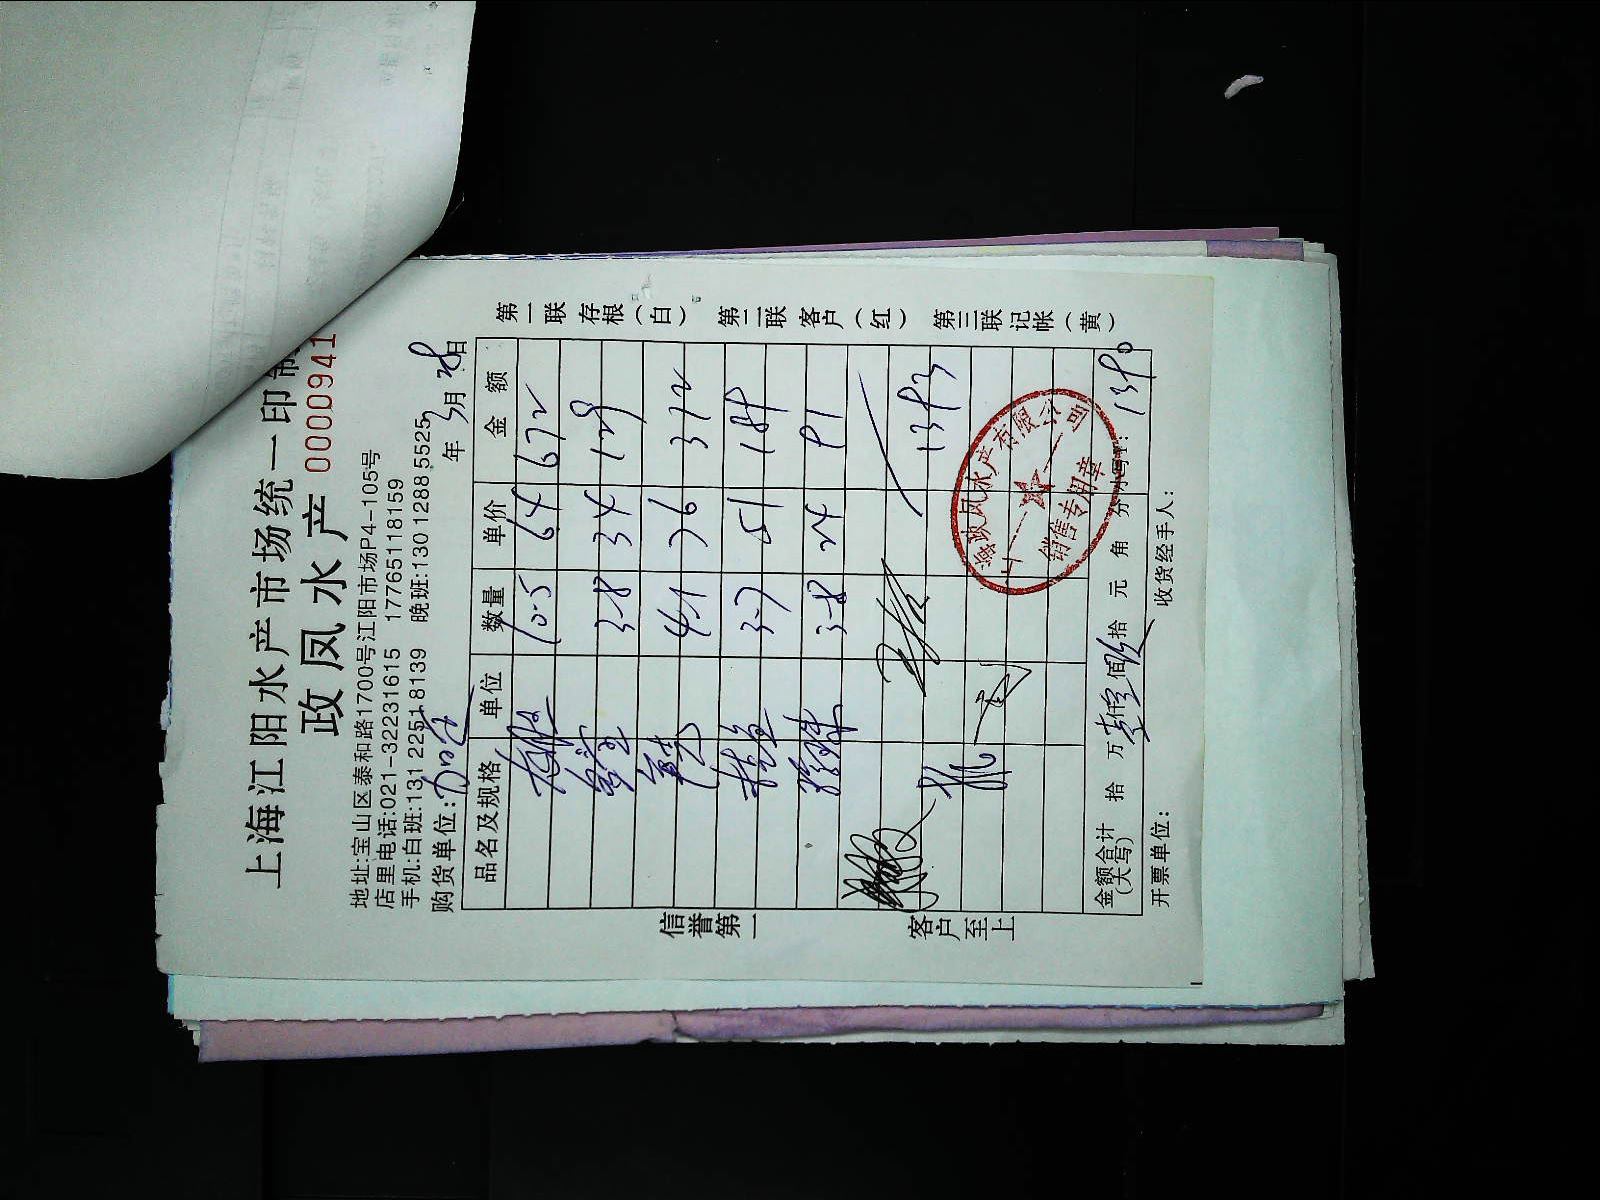 上海江阳水产市场统一印制
政凤水产 0000941
地址:宝山区泰和路1700号江阳市场P4-105号
店里电话:021-32231615 17765118159
手机:白班:131 2251 8139 晚班:130 1288 5525
购货单位: 年 3月28日
品名及规格 单位 数量 单价 金额
10.5 64 672
3-8 34 129
4-1 372
3-7 51 188
3-8 24 91
1393
金额合计(大写) 拾 万 仟 佰 拾 元 角 分 小写¥: 1390
开票单位: 收货经手人:
信誉第一 客户至上
第一联 存根(白) 第二联 客户(红) 第三联记帐(黄)
上海政凤水产有限公司
销售专用章